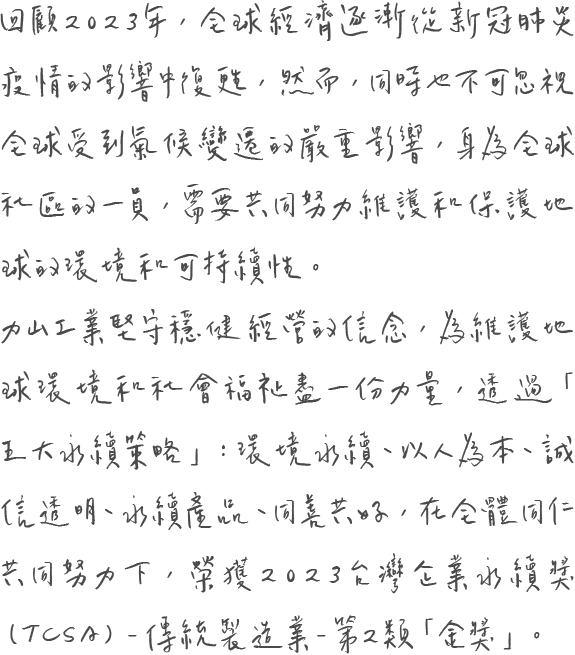 回顧2023年，全球經濟逐漸從新冠肺炎
疫情的影響中復甦，然而，同時也不可忽視
全球受到氣候變遷的嚴重影響，身為全球
社區的一員，需要共同努力維護和保護地
球的環境和可持續性。
力山工業堅守穩健經營的信念，為維護地
球環境和社會福祉盡一份力量，透過「
五大永續策略」：環境永續、以人為本、誠
信透明、永續產品、同善共好，在全體同仁
共同努力下，榮獲2023台灣企業永續獎
(TCSA)-傳統製造業-第2類「金獎」。